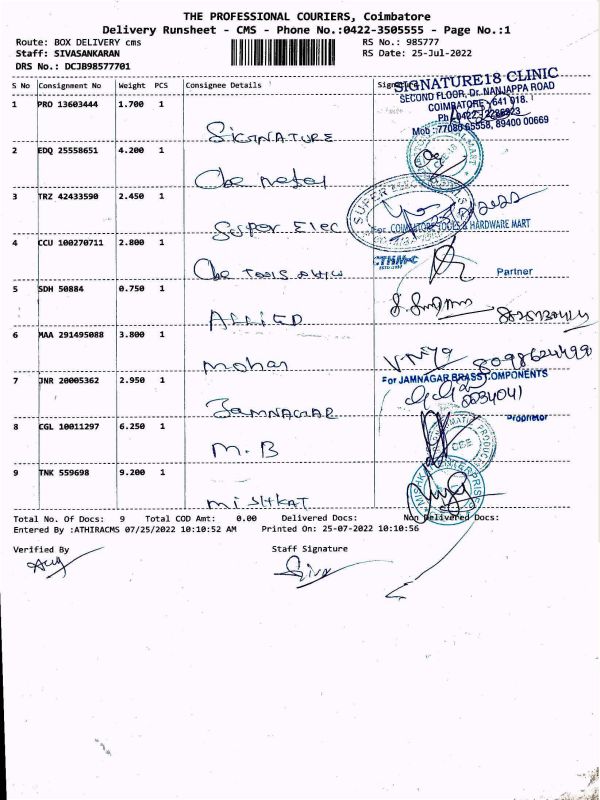 THE PROFESSIONAL COURIERS, Coimbatore
Delivery Runsheet - CMS - Phone No.:0422-3505555 - Page No.:1
Route: BOX DELIVERY cms
RS No.: 985777
Staff: SIVASANKARAN
RS Date: 25-Jul-2022
DRS No.: DCJB98577701
S No Consignment No Weight PCS Consignee Details
SIGNATURE18 CLINIC
SECOND FLOOR, Dr. NANJAPPA ROAD
COIMBATORE - 641 018.
1 PRO 13603444 1.700 1 SIGNATURE
2 EDQ 25558651 4.200 1 Cbe
3 TRZ 42433590 2.450 1 Super Elec
For COIMBATORE TOOLS & HARDWARE MART
4 CCU 100270711 2.800 1 Cbe Tools
Partner
5 SDH 50884 0.750 1 ALLIED
6 MAA 291495088 3.800 1 Mohan
8098624499
For JAMNAGAR BRASS COMPONENTS
7 JNR 20005362 2.950 1 JAMNAGAR
Proprietor
8 CGL 10011297 6.250 1 M.B
9 TNK 559698 9.200 1 MISHKAT
Total No. Of Docs: 9 Total COD Amt: 0.00 Delivered Docs: Non Delivered Docs:
Entered By :ATHIRACMS 07/25/2022 10:10:52 AM Printed On: 25-07-2022 10:10:56
Verified By Staff Signature
Siva